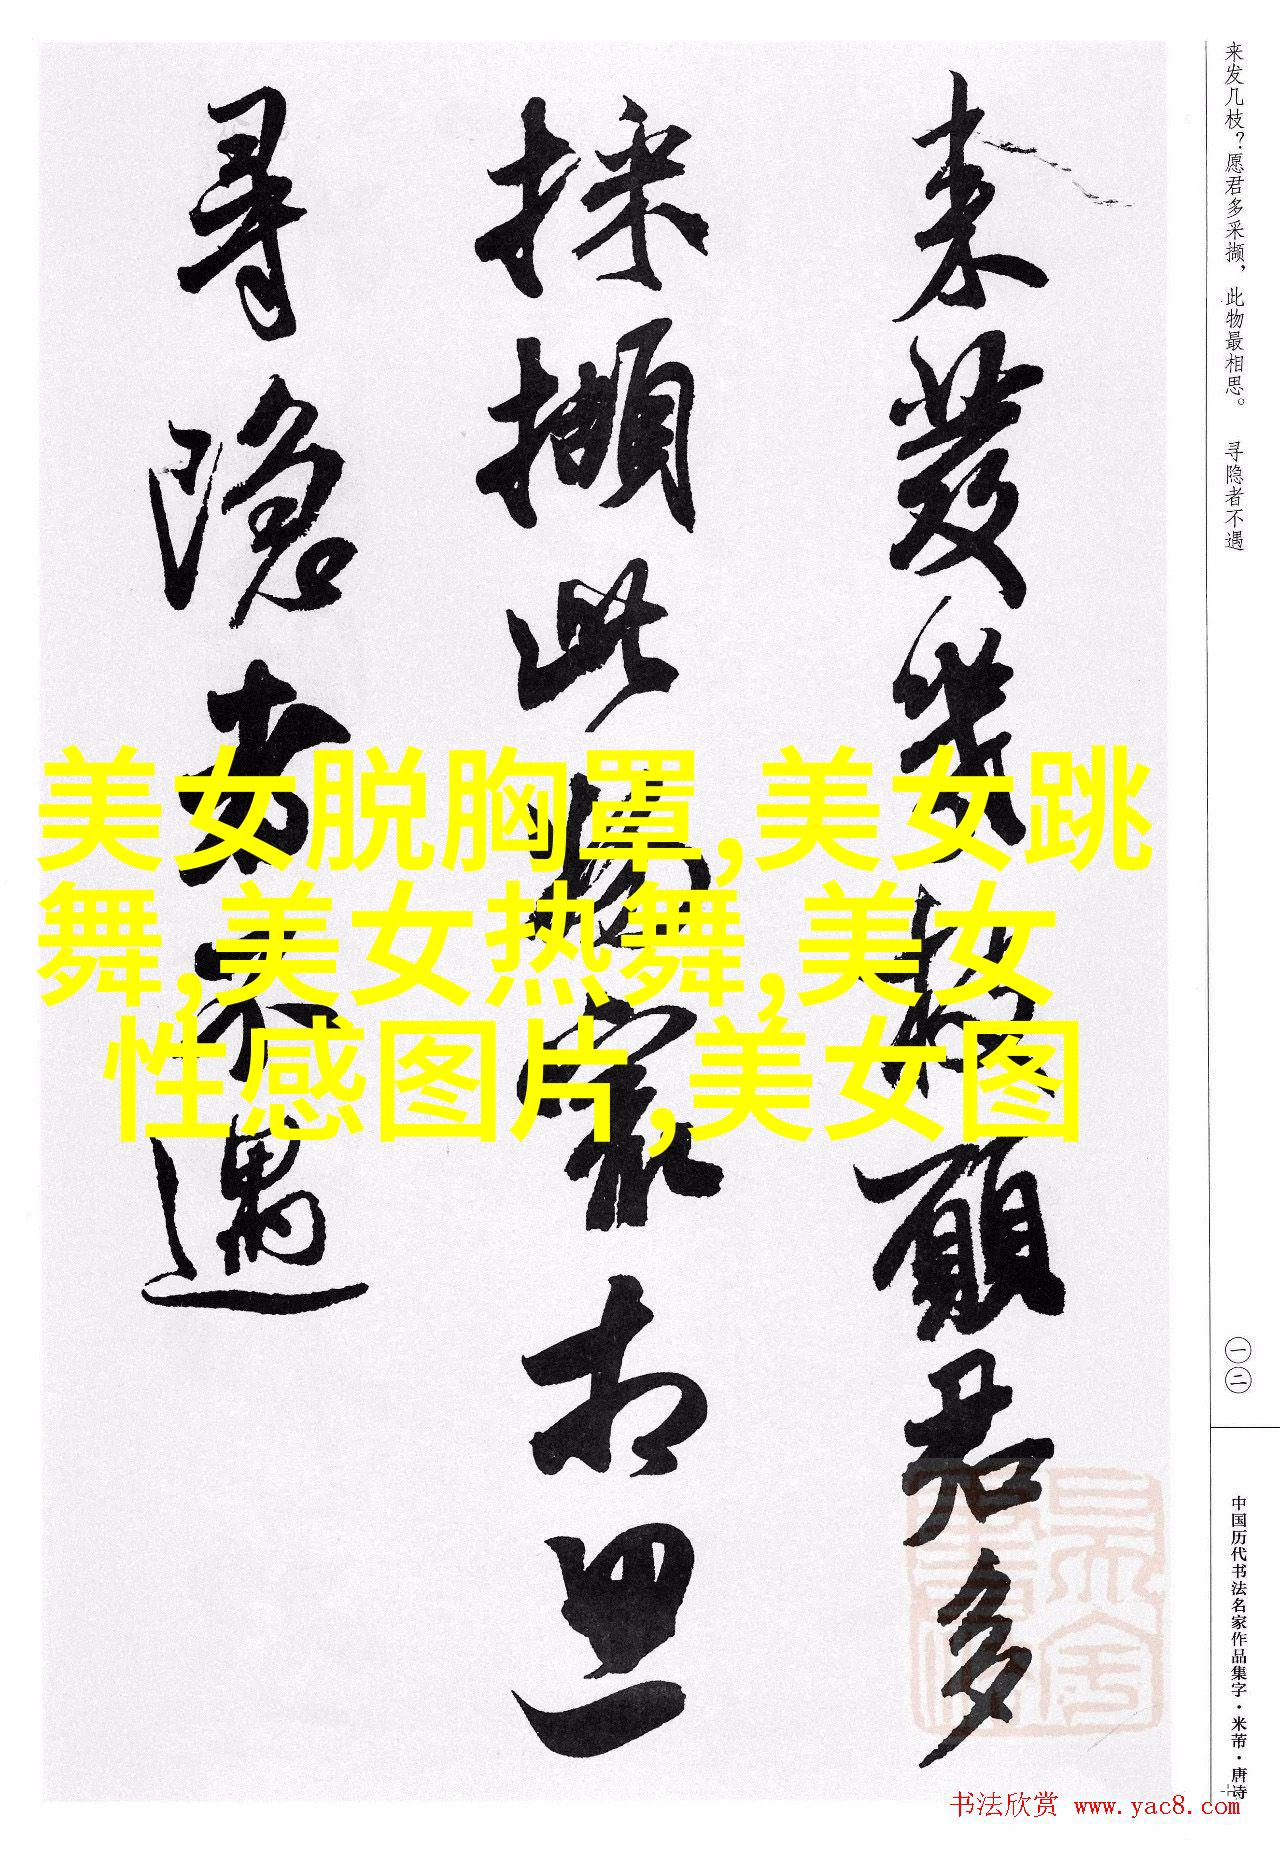 来发几枝？愿君多采撷，此物最相思。 寻隐者不遇
一二
中国历代书法名家作品集字·米芾·唐诗
来發幾枝願君多
採擷此物最相思
尋隱者不遇
美女脱胸罩,美女跳
舞,美女热舞,美女
性感图片,美女图
书法欣赏 www.yac8.com